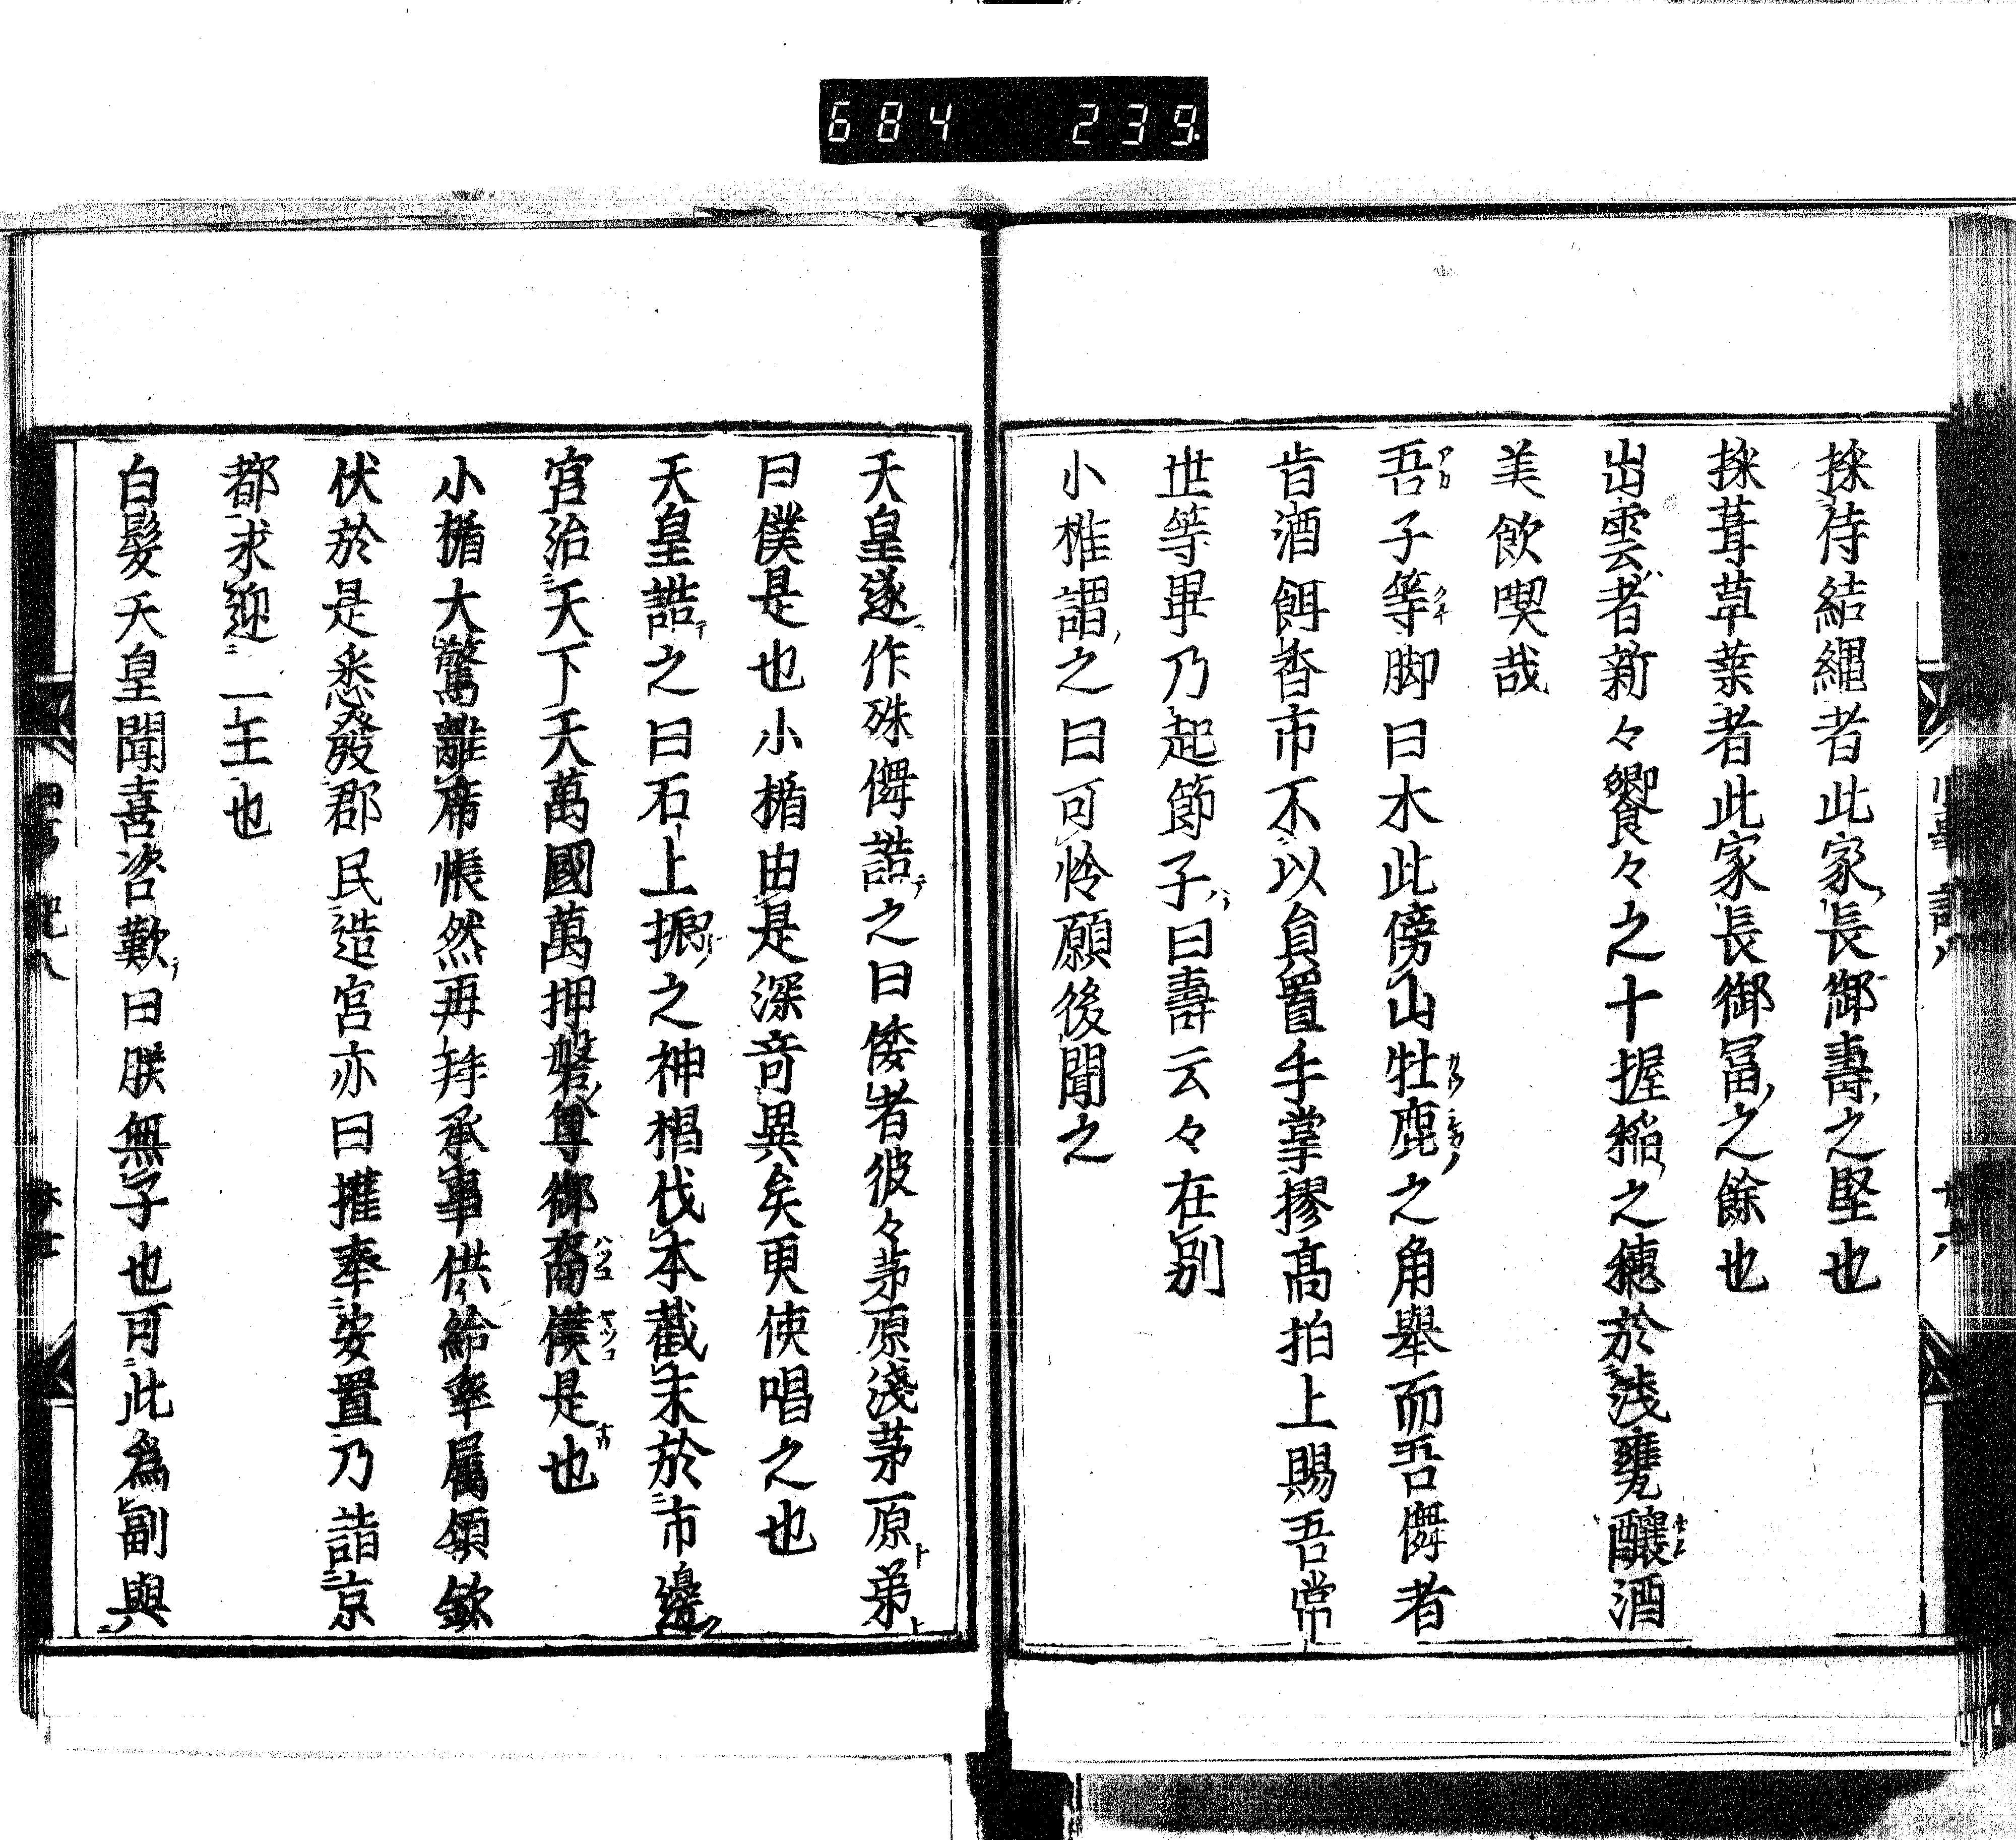 684 239
採待結繩者此家長御壽之堅也
採葺草葉者此家長御冨之餘也
出雲者新々饗々之十握稲之穗於淺甕釀酒
美飲喫哉
吾子等脚曰木此傍山牡鹿之角舉而吾儛者
肯酒餌香市不以負置手掌摎髙拍上賜吾常
世等畢乃起節子曰壽云々在别
小楯謂之曰可怜願後聞之
天皇遂作殊儛誥之曰倭者彼々茅原淺茅原弟
曰僕是也小楯由是深奇異矣更使唱之也
天皇誥之曰石上振之神榅伐本截末於市邊
宮治天下天萬國萬押磐尊御裔僕是也
小楯大驚離席悵然再拜承事供給率属領欽
伏於是悉發郡民造宮亦曰攉奉安置乃詣京
都求迎二王也
白髮天皇聞喜咨歎曰朕無子也可此為副與